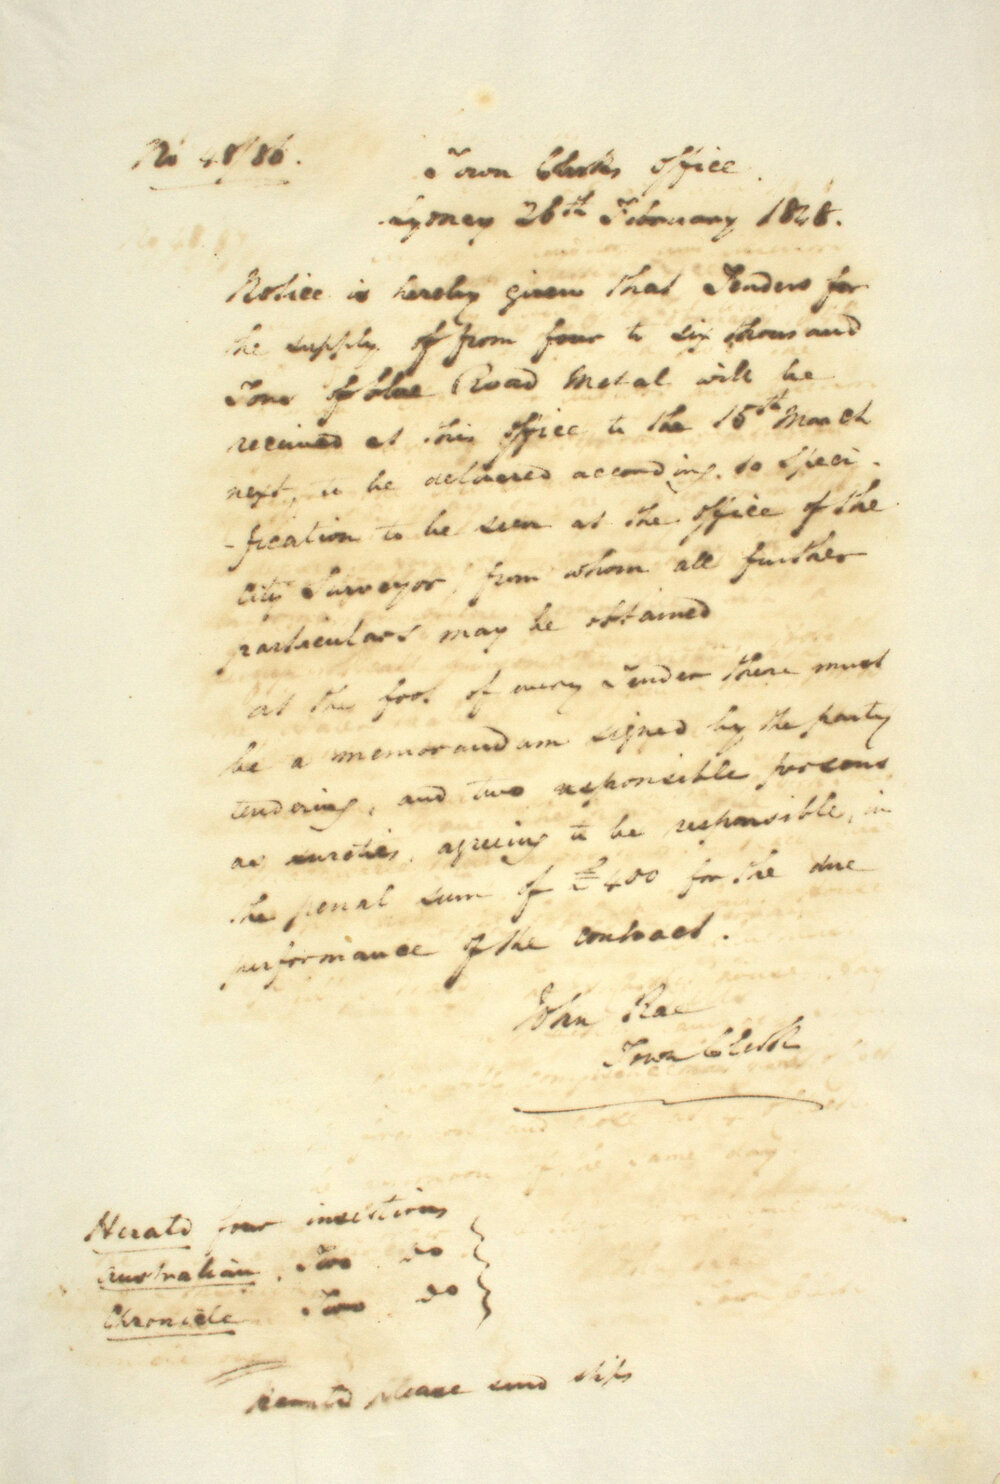 No 48/86.
Town Clerks Office.
Sydney 26th February 1848.
Notice is hereby given that Tenders for
the supply of from four to six thousand
Tons of blue Road Metal will be
received at this office to the 15th March
next, to be delivered according to speci-
-fication to be seen at the office of the
City Surveyor, from whom all further
particulars may be obtained
At the foot of every Tender there must
be a memorandum signed by the party
tendering, and two responsible persons
as sureties, agreeing to be responsible, in
the penal sum of £400 for the due
performance of the contract.
John Rae
Town Clerk
Herald four insertions
Australian Two do
Chronicle Two do
please send slips